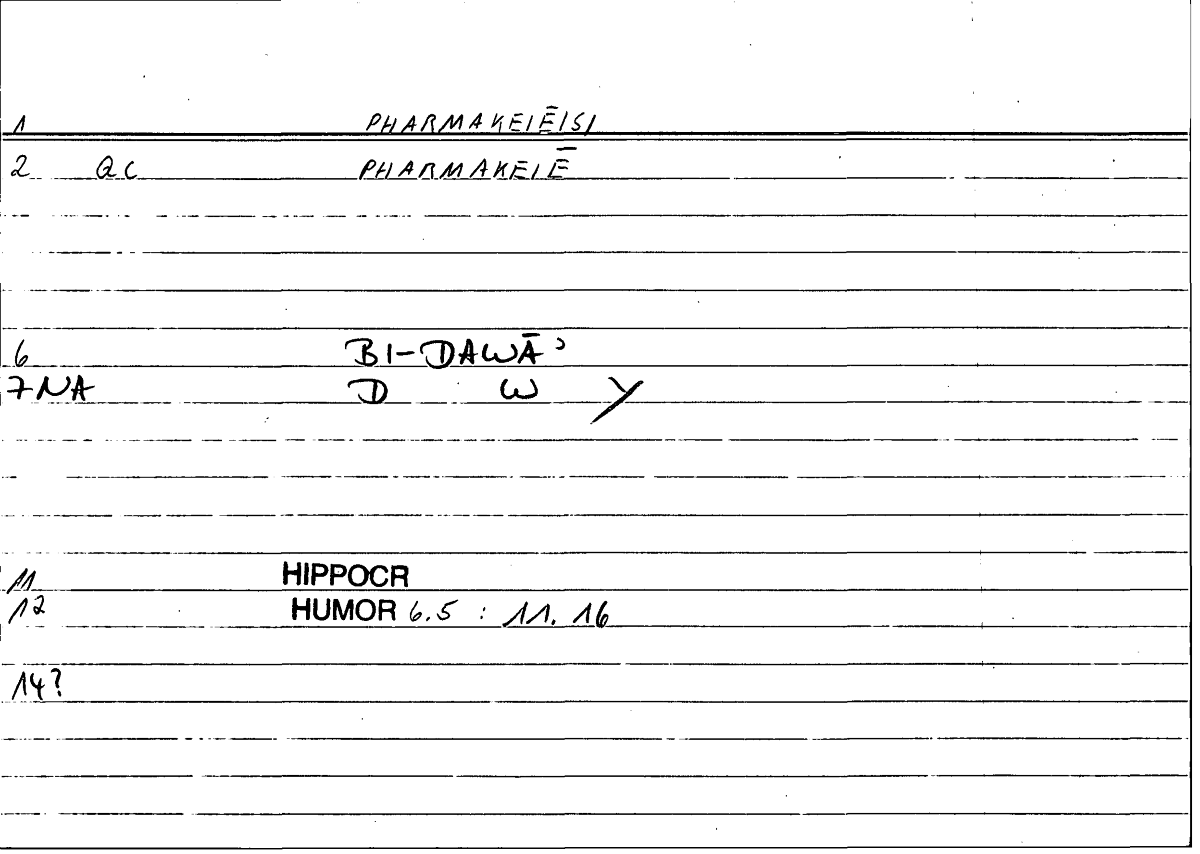 1 PHARMAKEIĒISI
2 QC PHARMAKEIĒ
6 BI-DAWĀʾ
7 NA D W Y
11 HIPPOCR
12 HUMOR 6.5 : 11. 16
14?